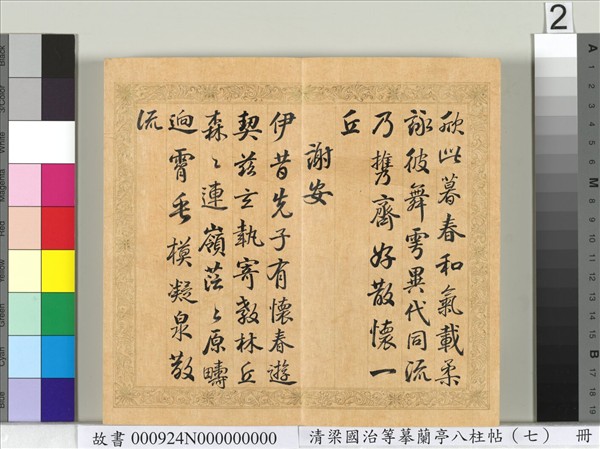 2
欣此暮春和氣載柔
詠彼舞雩異代同流
乃攜齊好散懷一
丘
謝安
伊昔先子有懷春遊
契茲言執寄敖林丘
森〻連嶺茫〻原疇
逈霄垂模凝泉散
流
Black
3/Color
White
Magenta
Red
Yellow
Green
Cyan
Blue
A 1 2 3 4 5 6 M 8 9 10 11 12 13 14 15 B 17 18 19
故書 000924N000000000
清梁國治等摹蘭亭八柱帖（七） 冊